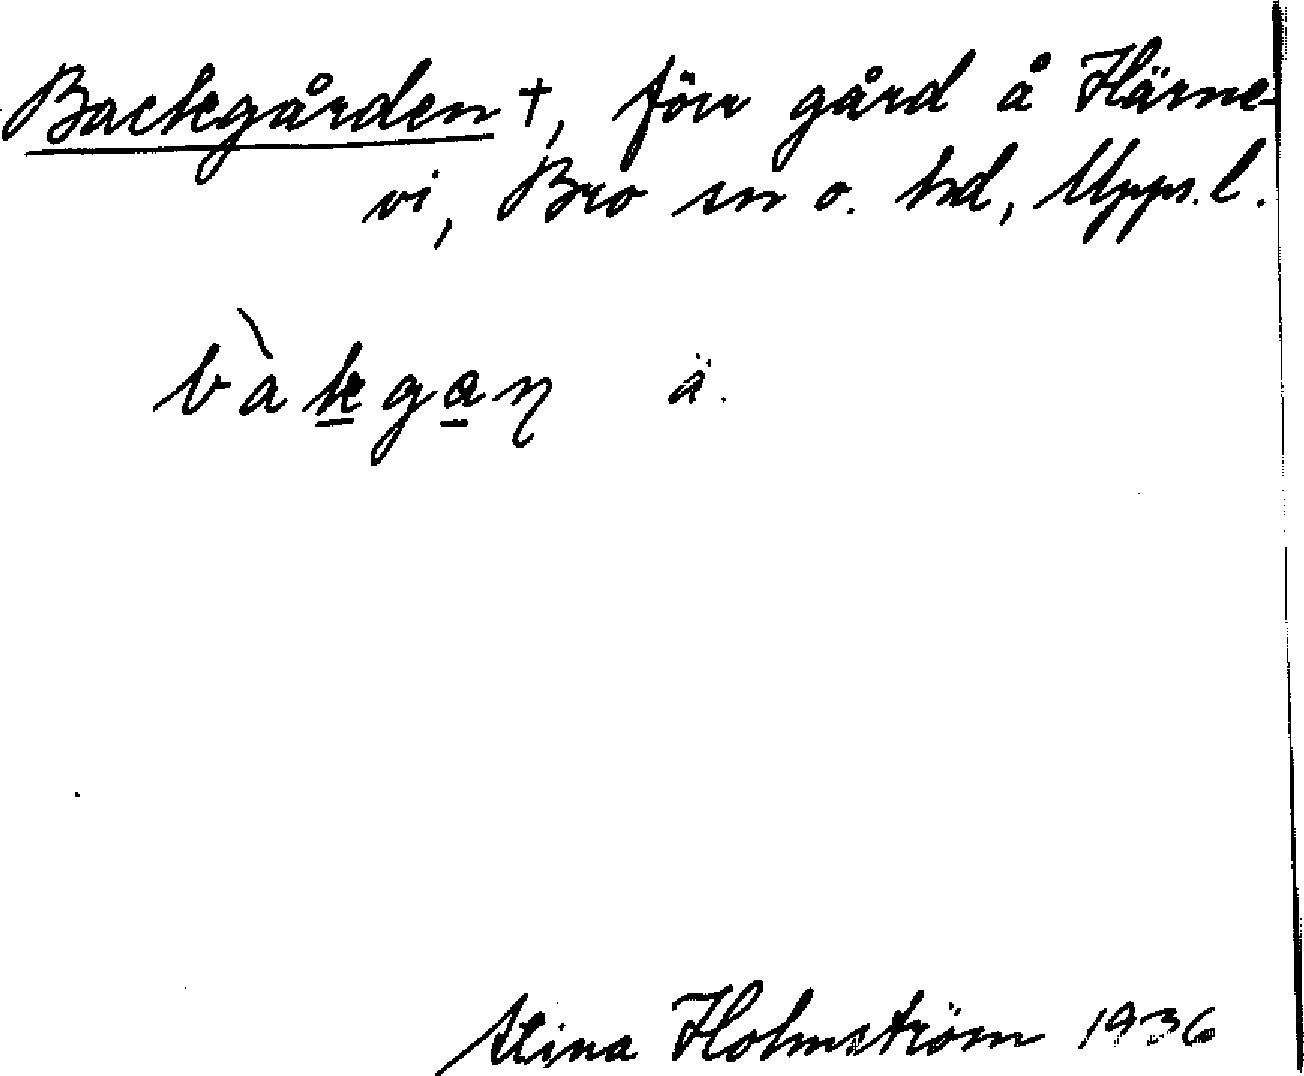 Backgården †, förr gård å Härne-
vi, Bro sn o. hd, Upps. l.
bàkgaɳ ä.
Stina Holmström 1936